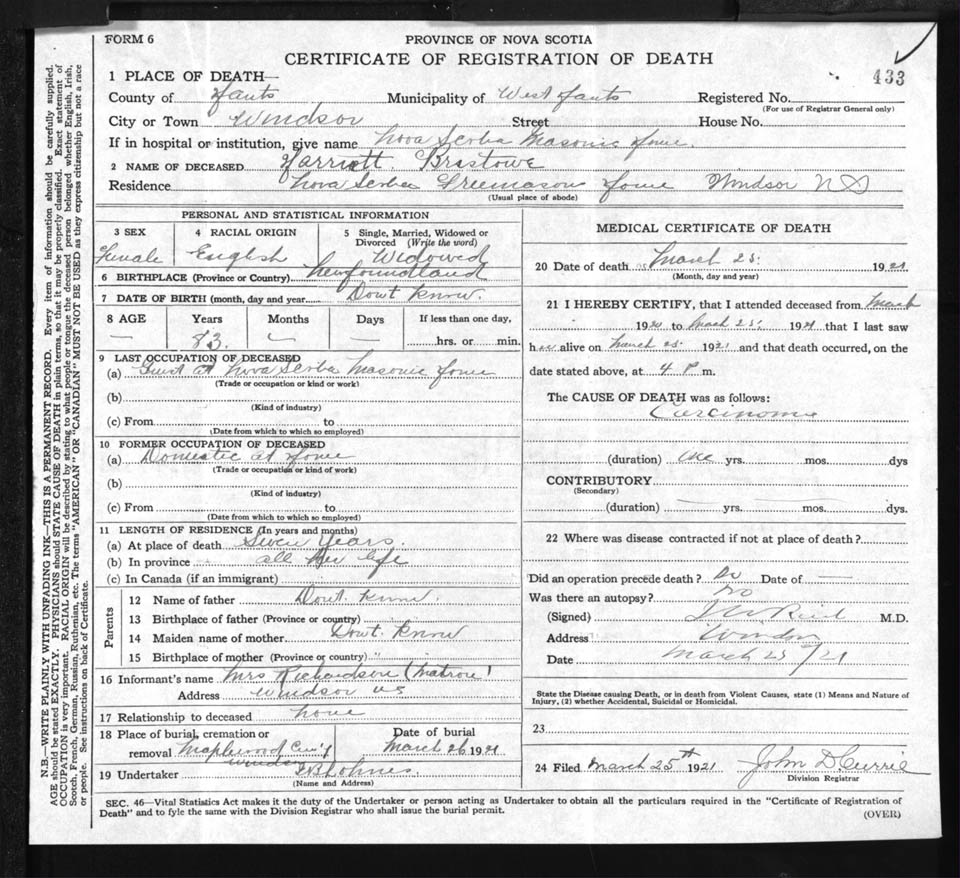 FORM 6
PROVINCE OF NOVA SCOTIA
CERTIFICATE OF REGISTRATION OF DEATH
433
1 PLACE OF DEATH—
County of Hants Municipality of West Hants Registered No.
(For use of Registrar General only)
City or Town Windsor Street House No.
If in hospital or institution, give name Nova Scotia Masonic Home.
2 NAME OF DECEASED Harriett Bristowe
Residence Nova Scotia Freemason Home Windsor NS
(Usual place of abode)
PERSONAL AND STATISTICAL INFORMATION
3 SEX 4 RACIAL ORIGIN 5 Single, Married, Widowed or Divorced (Write the word)
Female English Widowed
6 BIRTHPLACE (Province or Country) Newfoundland
7 DATE OF BIRTH (month, day and year) Dont know.
8 AGE Years Months Days If less than one day,
— 83. — — hrs. or min.
9 LAST OCCUPATION OF DECEASED
(a) Guest at Nova Scotia Masonic Home
(Trade or occupation or kind or work)
(b)
(Kind of industry)
(c) From to
(Date from which to which so employed)
10 FORMER OCCUPATION OF DECEASED
(a) Domestic at Home
(Trade or occupation or kind of work)
(b)
(Kind of industry)
(c) From to
(Date from which to which so employed)
11 LENGTH OF RESIDENCE (In years and months)
(a) At place of death Seven Years.
(b) In province all her life
(c) In Canada (if an immigrant)
Parents
12 Name of father Dont know.
13 Birthplace of father (Province or country)
14 Maiden name of mother Dont know
15 Birthplace of mother (Province or country) "
16 Informant's name Mrs Richardson (Matron)
Address Windsor NS
17 Relationship to deceased none
18 Place of burial, cremation or removal Maplewood Cem'y Windsor
Date of burial March 26 1921
19 Undertaker
(Name and Address)
MEDICAL CERTIFICATE OF DEATH
20 Date of death March 25. 1921
(Month, day and year)
21 I HEREBY CERTIFY, that I attended deceased from March
1920 to March 25. 1921 that I last saw
her alive on March 25. 1921 and that death occurred, on the
date stated above, at 4 P m.
The CAUSE OF DEATH was as follows:
Carcinoma
(duration) one yrs. mos. dys
CONTRIBUTORY
(Secondary)
(duration) yrs. mos. dys.
22 Where was disease contracted if not at place of death?
Did an operation precede death? No Date of —
Was there an autopsy? no
(Signed) Reid M.D.
Address Windsor
Date March 25/21
State the Disease causing Death, or in death from Violent Causes, state (1) Means and Nature of
Injury, (2) whether Accidental, Suicidal or Homicidal.
23
24 Filed March 25th 1921 John D Currie
Division Registrar
SEC. 46—Vital Statistics Act makes it the duty of the Undertaker or person acting as Undertaker to obtain all the particulars required in the "Certificate of Registration of
Death" and to fyle the same with the Division Registrar who shall issue the burial permit.
(OVER)
N.B.—WRITE PLAINLY WITH UNFADING INK—THIS IS A PERMANENT RECORD. Every item of information should be carefully supplied.
AGE should be stated EXACTLY. PHYSICIANS should STATE CAUSE OF DEATH in plain terms, so that it may be properly classified. Exact statement of
OCCUPATION is very important. RACIAL ORIGIN will be described by stating to what people or tongue the deceased person belonged whether English, Irish,
Scotch, French, German, Russian, Ruthenian, etc. The terms "AMERICAN" OR "CANADIAN" MUST NOT BE USED as they express citizenship but not a race
or people. See instructions on back of Certificate.